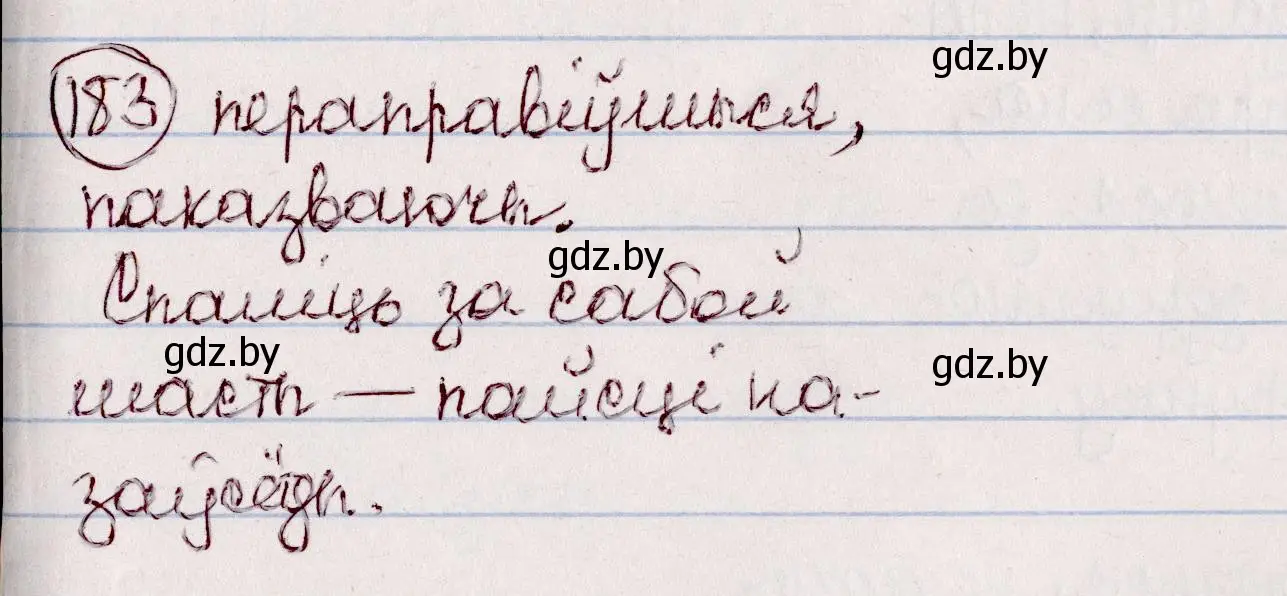 183 пераправіўшыся,
gdz.by
паказваючы.
gdz.by
Спаліць за сабой
gdz.by
gdz.by
масты — пайсці на-
заўсёды.